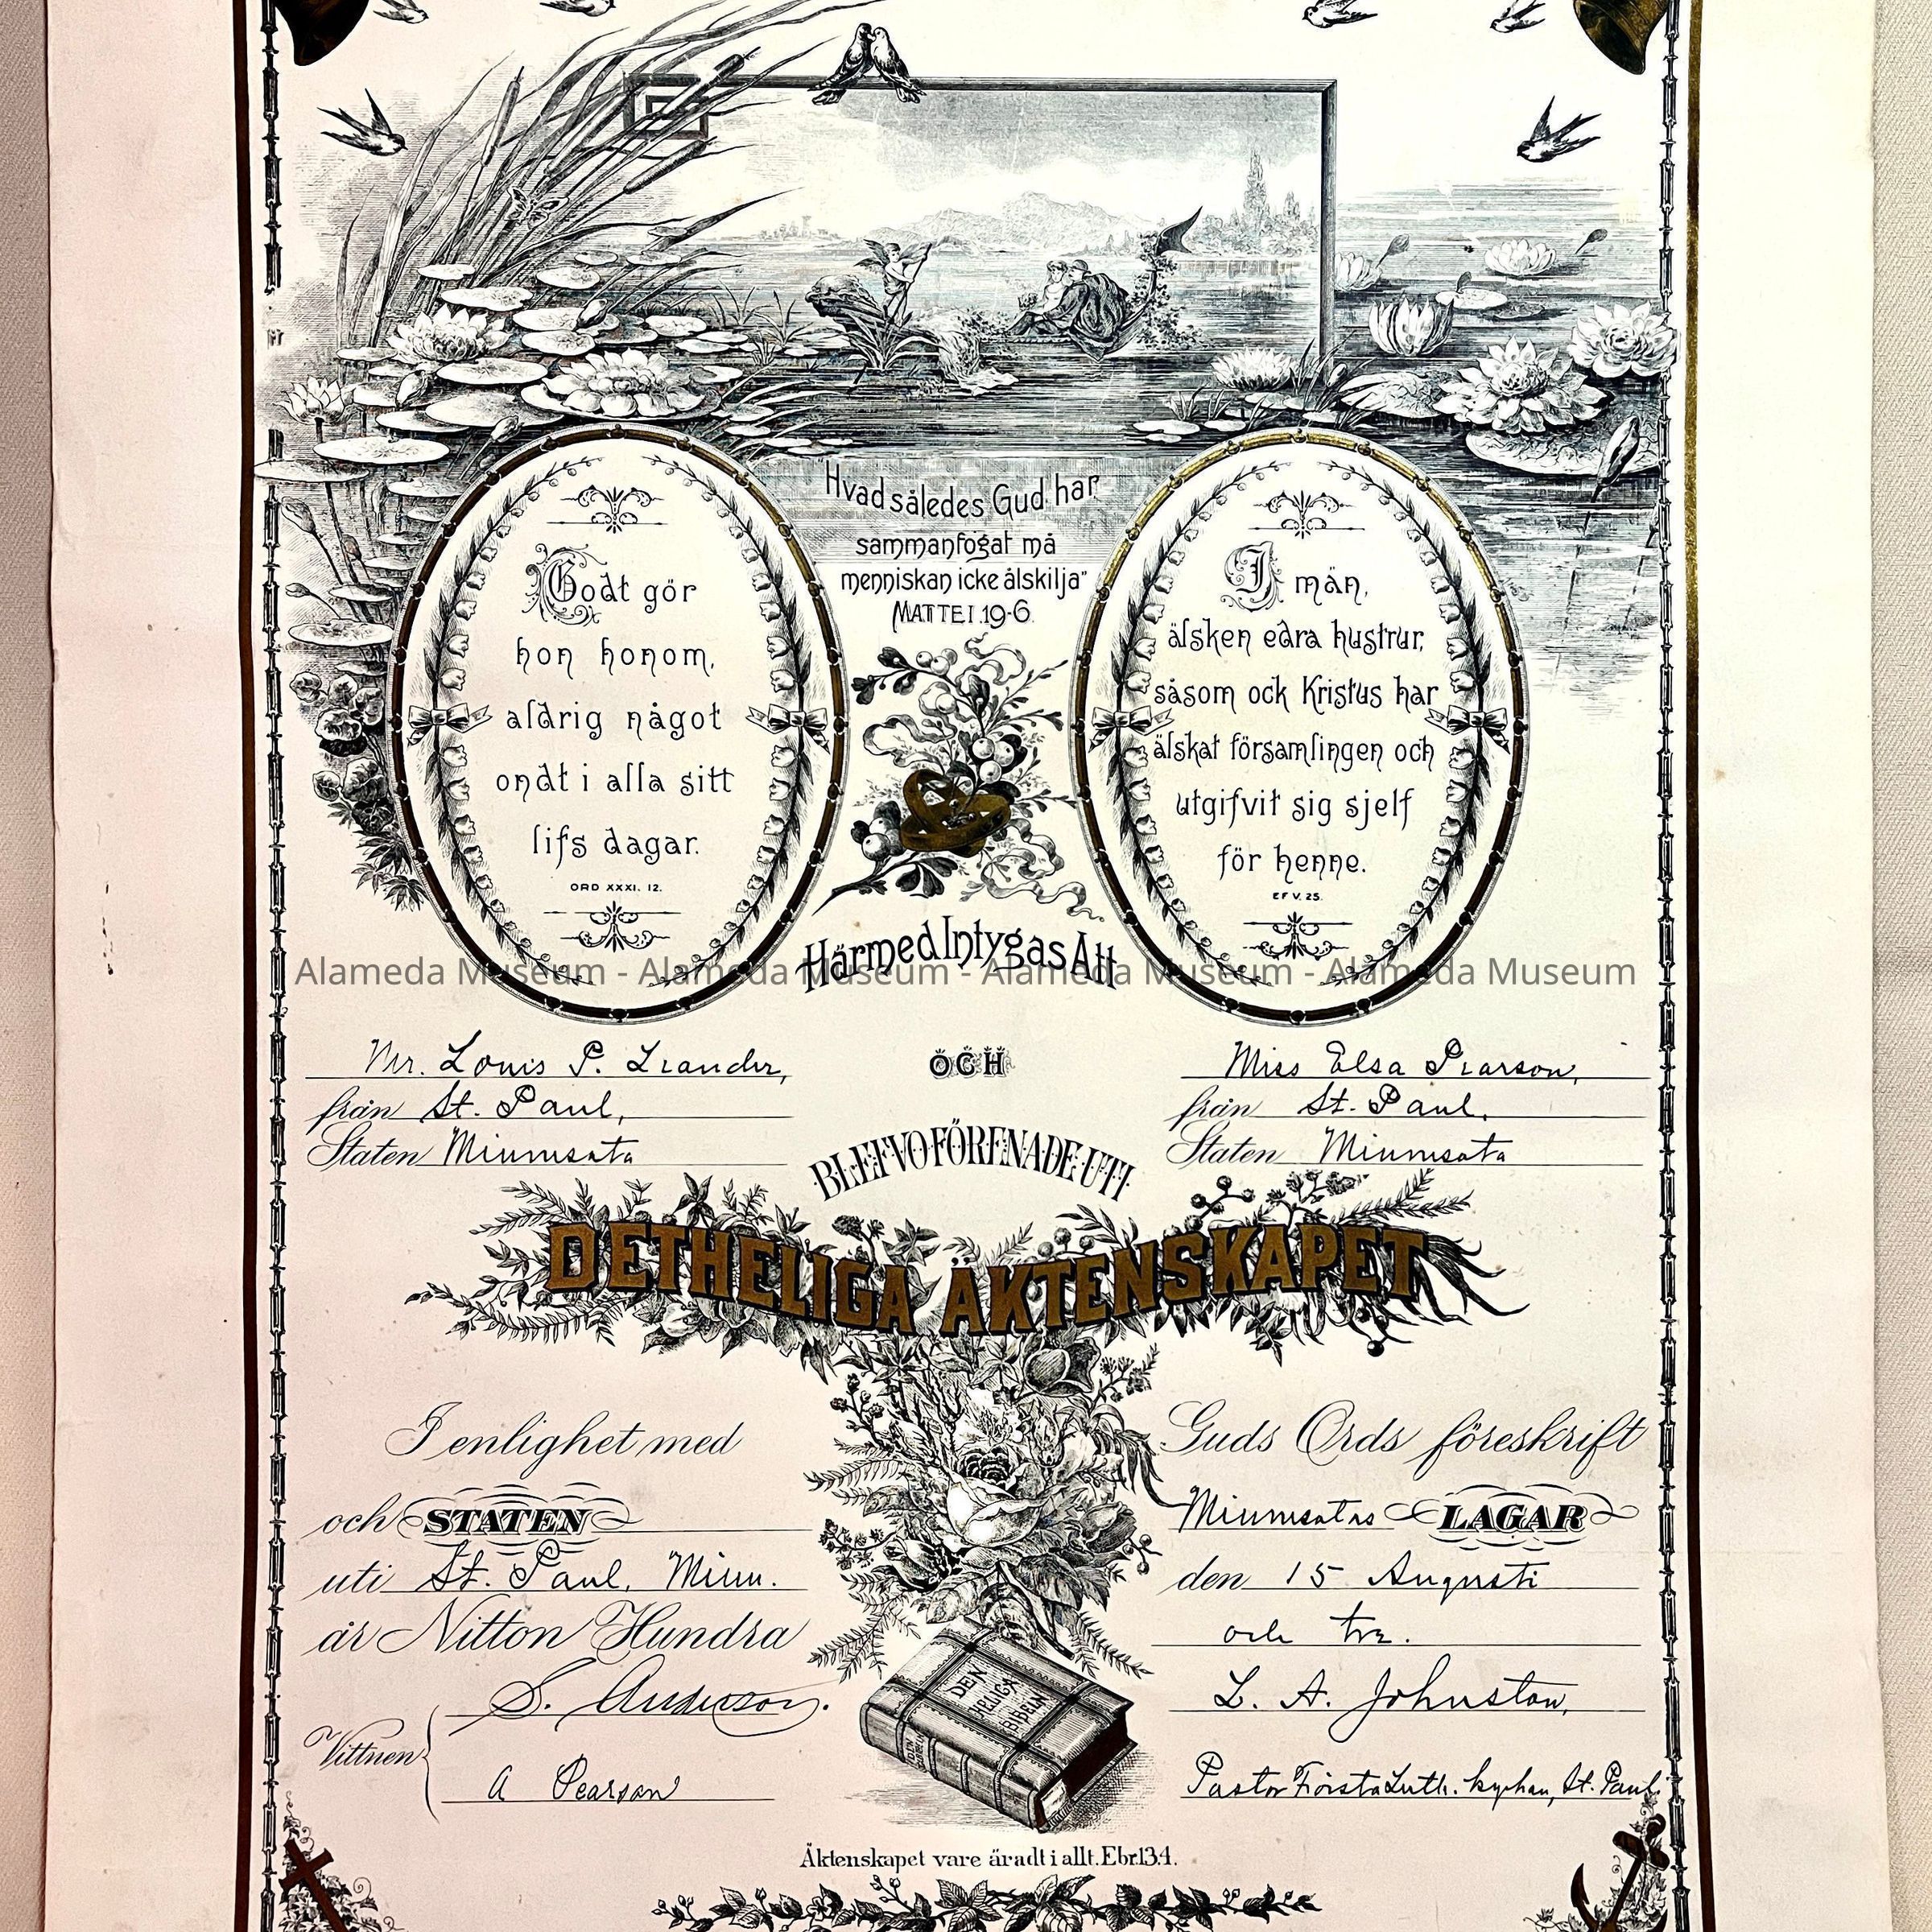 "Hvad således Gud har
sammanfogat må
menniskan icke åtskilja"
MATTEI.19-6.
Godt gör
hon honom,
aldrig något
ondt i alla sitt
lifs dagar.
ORD XXXI. 12.
I män,
älsken edra hustrur,
såsom ock Kristus har
älskat församlingen och
utgifvit sig sjelf
för henne.
EF V. 25.
Härmed Intygas Att
Alameda Museum - Alameda Museum - Alameda Museum - Alameda Museum
Mr. Louis P. Leander,
OCH
Miss Elsa Pearson,
från St. Paul,
från St. Paul,
Staten Minnesota
Staten Minnesota
BLEFVO FÖRENADE UTI
DET HELIGA ÄKTENSKAPET
I enlighet med
Guds Ords föreskrift
och STATEN
Minnesotas LAGAR
uti St. Paul, Minn.
den 15 Augusti
år Nitton Hundra
och tre.
S. Anderson.
L. A. Johnston,
Vittnen
A Pearson
Pastor Första Luth. kyrkan, St. Paul.
DEN
HELIGA
BIBELN
Äktenskapet vare äradt i allt. Ebr.13.4.